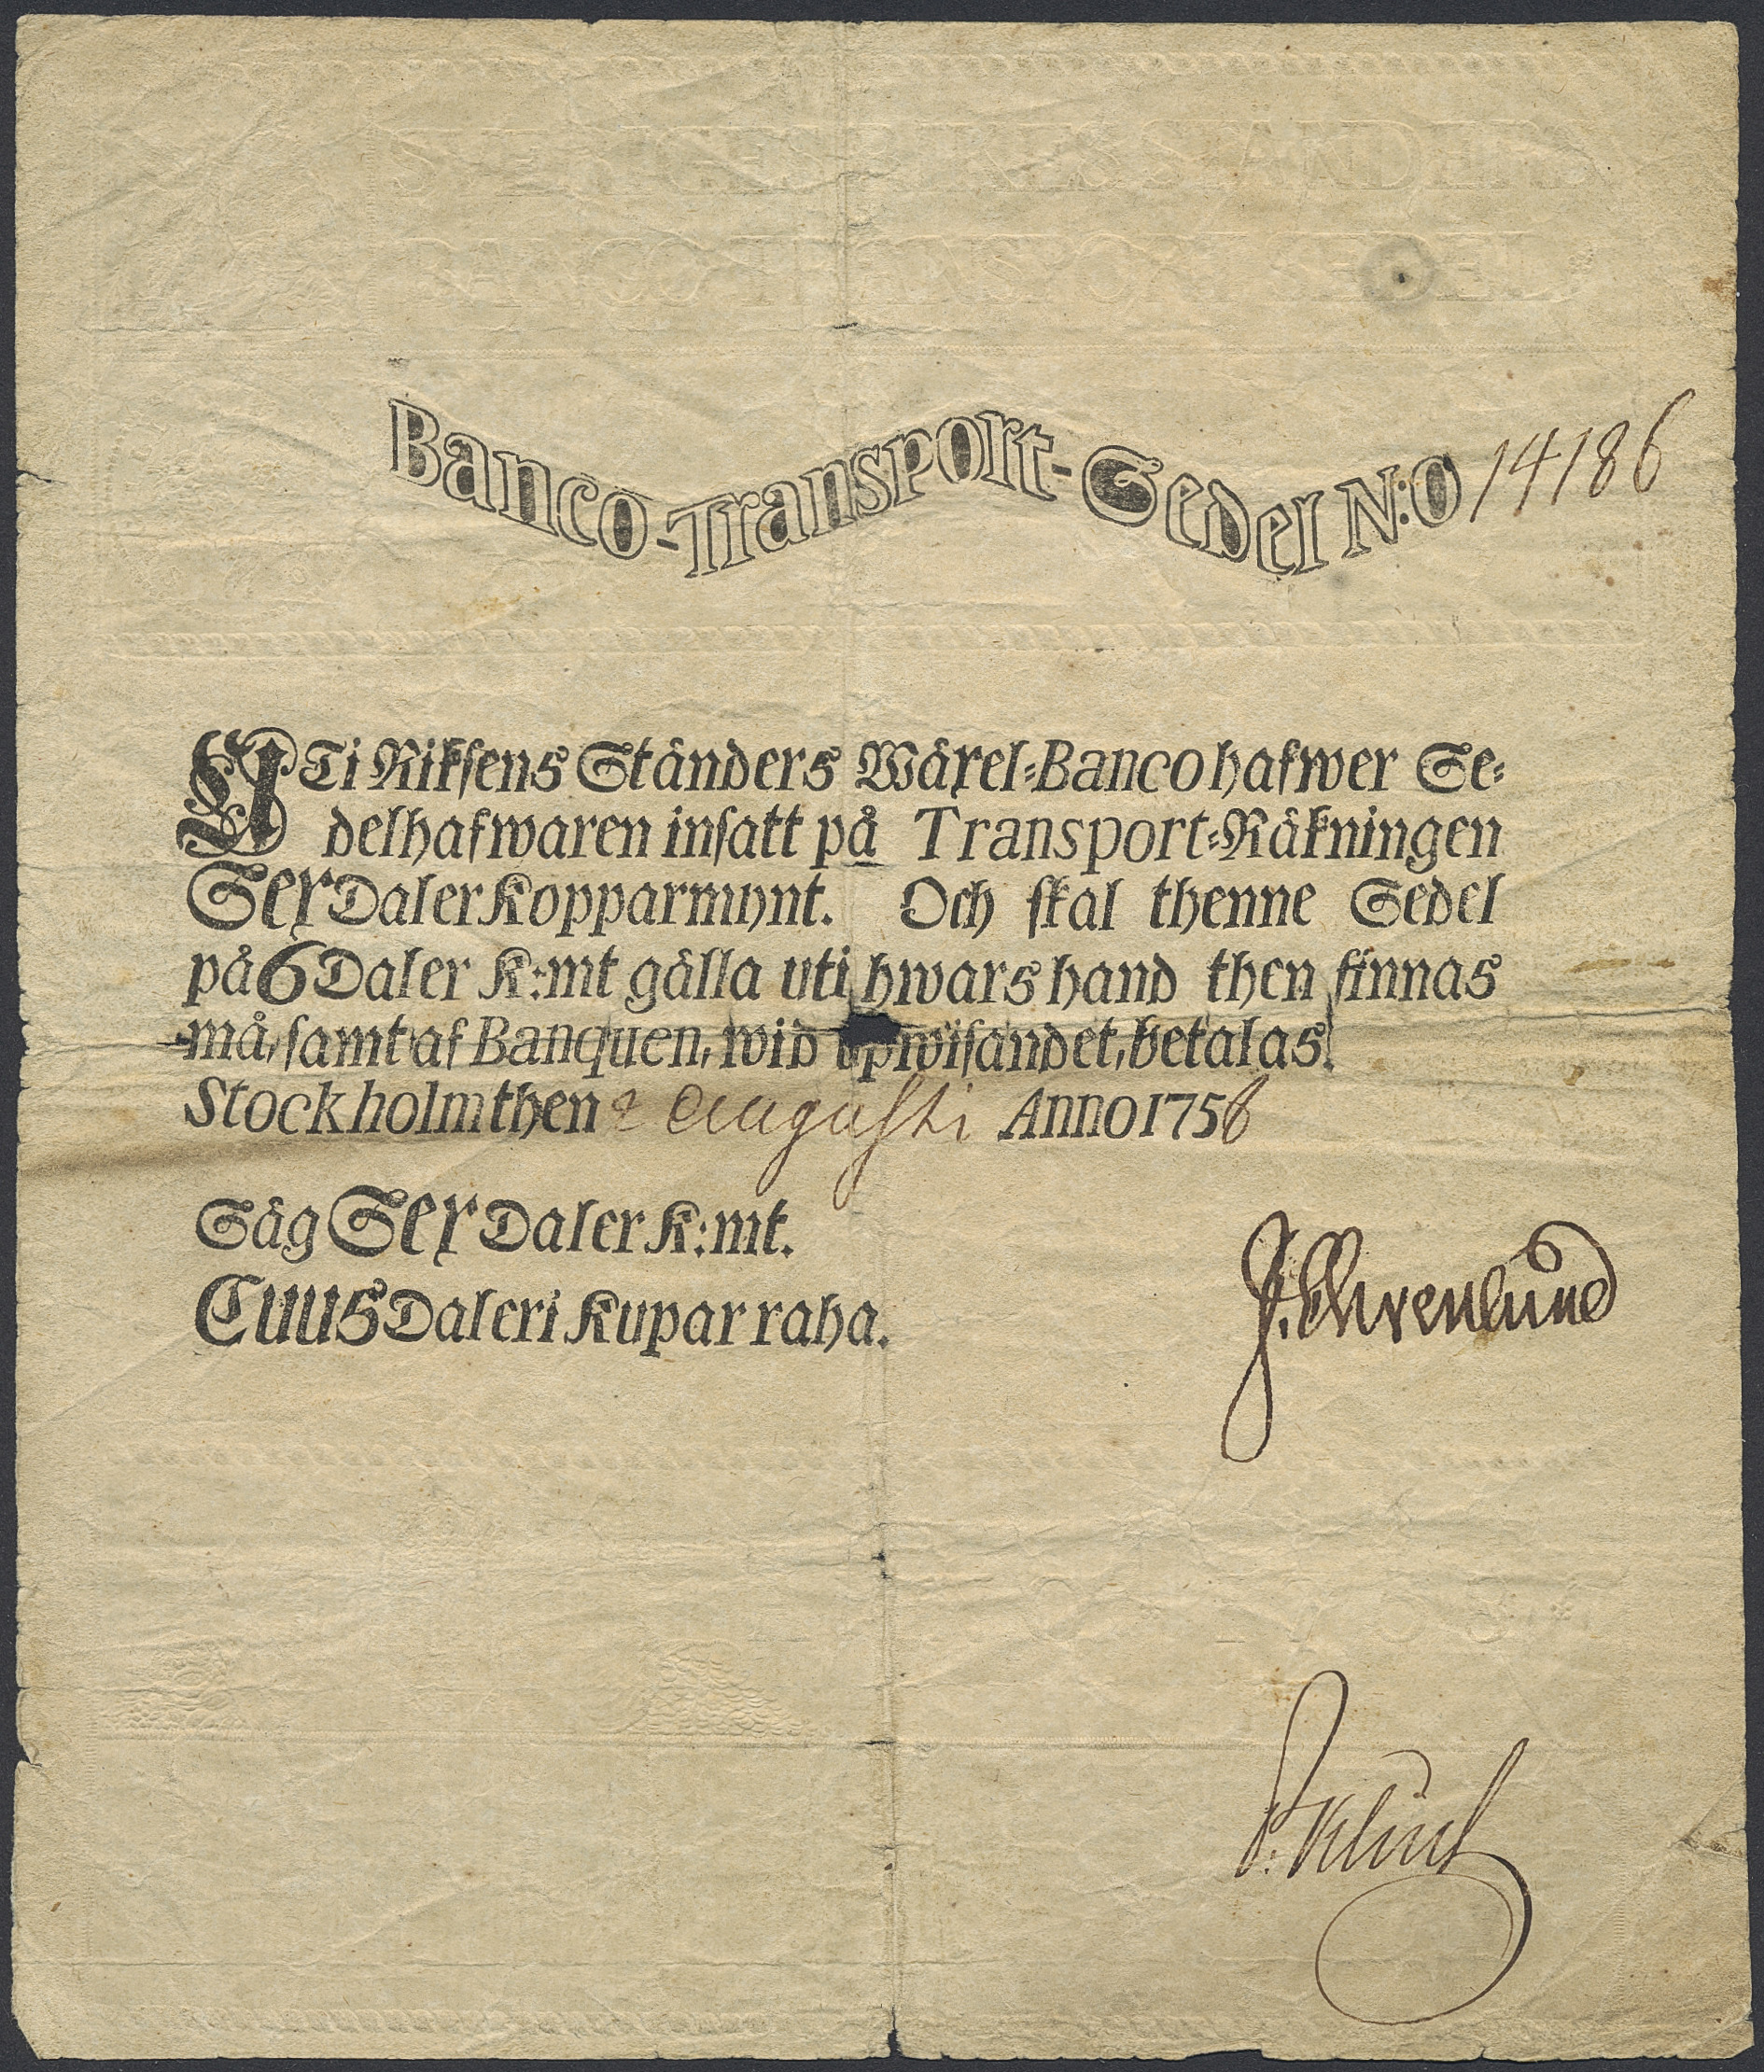 SVERIGES RIKES STANDERS
BANCO TRANSPORT SEDEL
Banco-Transport-Sedel N:O 14186
UTi Riksens Ständers Wäxel=Banco hafwer Se=
delhafwaren insatt på Transport=Räkningen
Sex Daler Kopparmynt. Och skal thenne Sedel
på 6 Daler K:mt gälla uti hwars hand then finnas
må, samt af Banquen, wid upwisandet, betalas.
Stockholm then 2 Augusti Anno 1756
Säg Sex Daler K:mt.
Cuus Daleri Kupar raha.
J. Ehrenlund